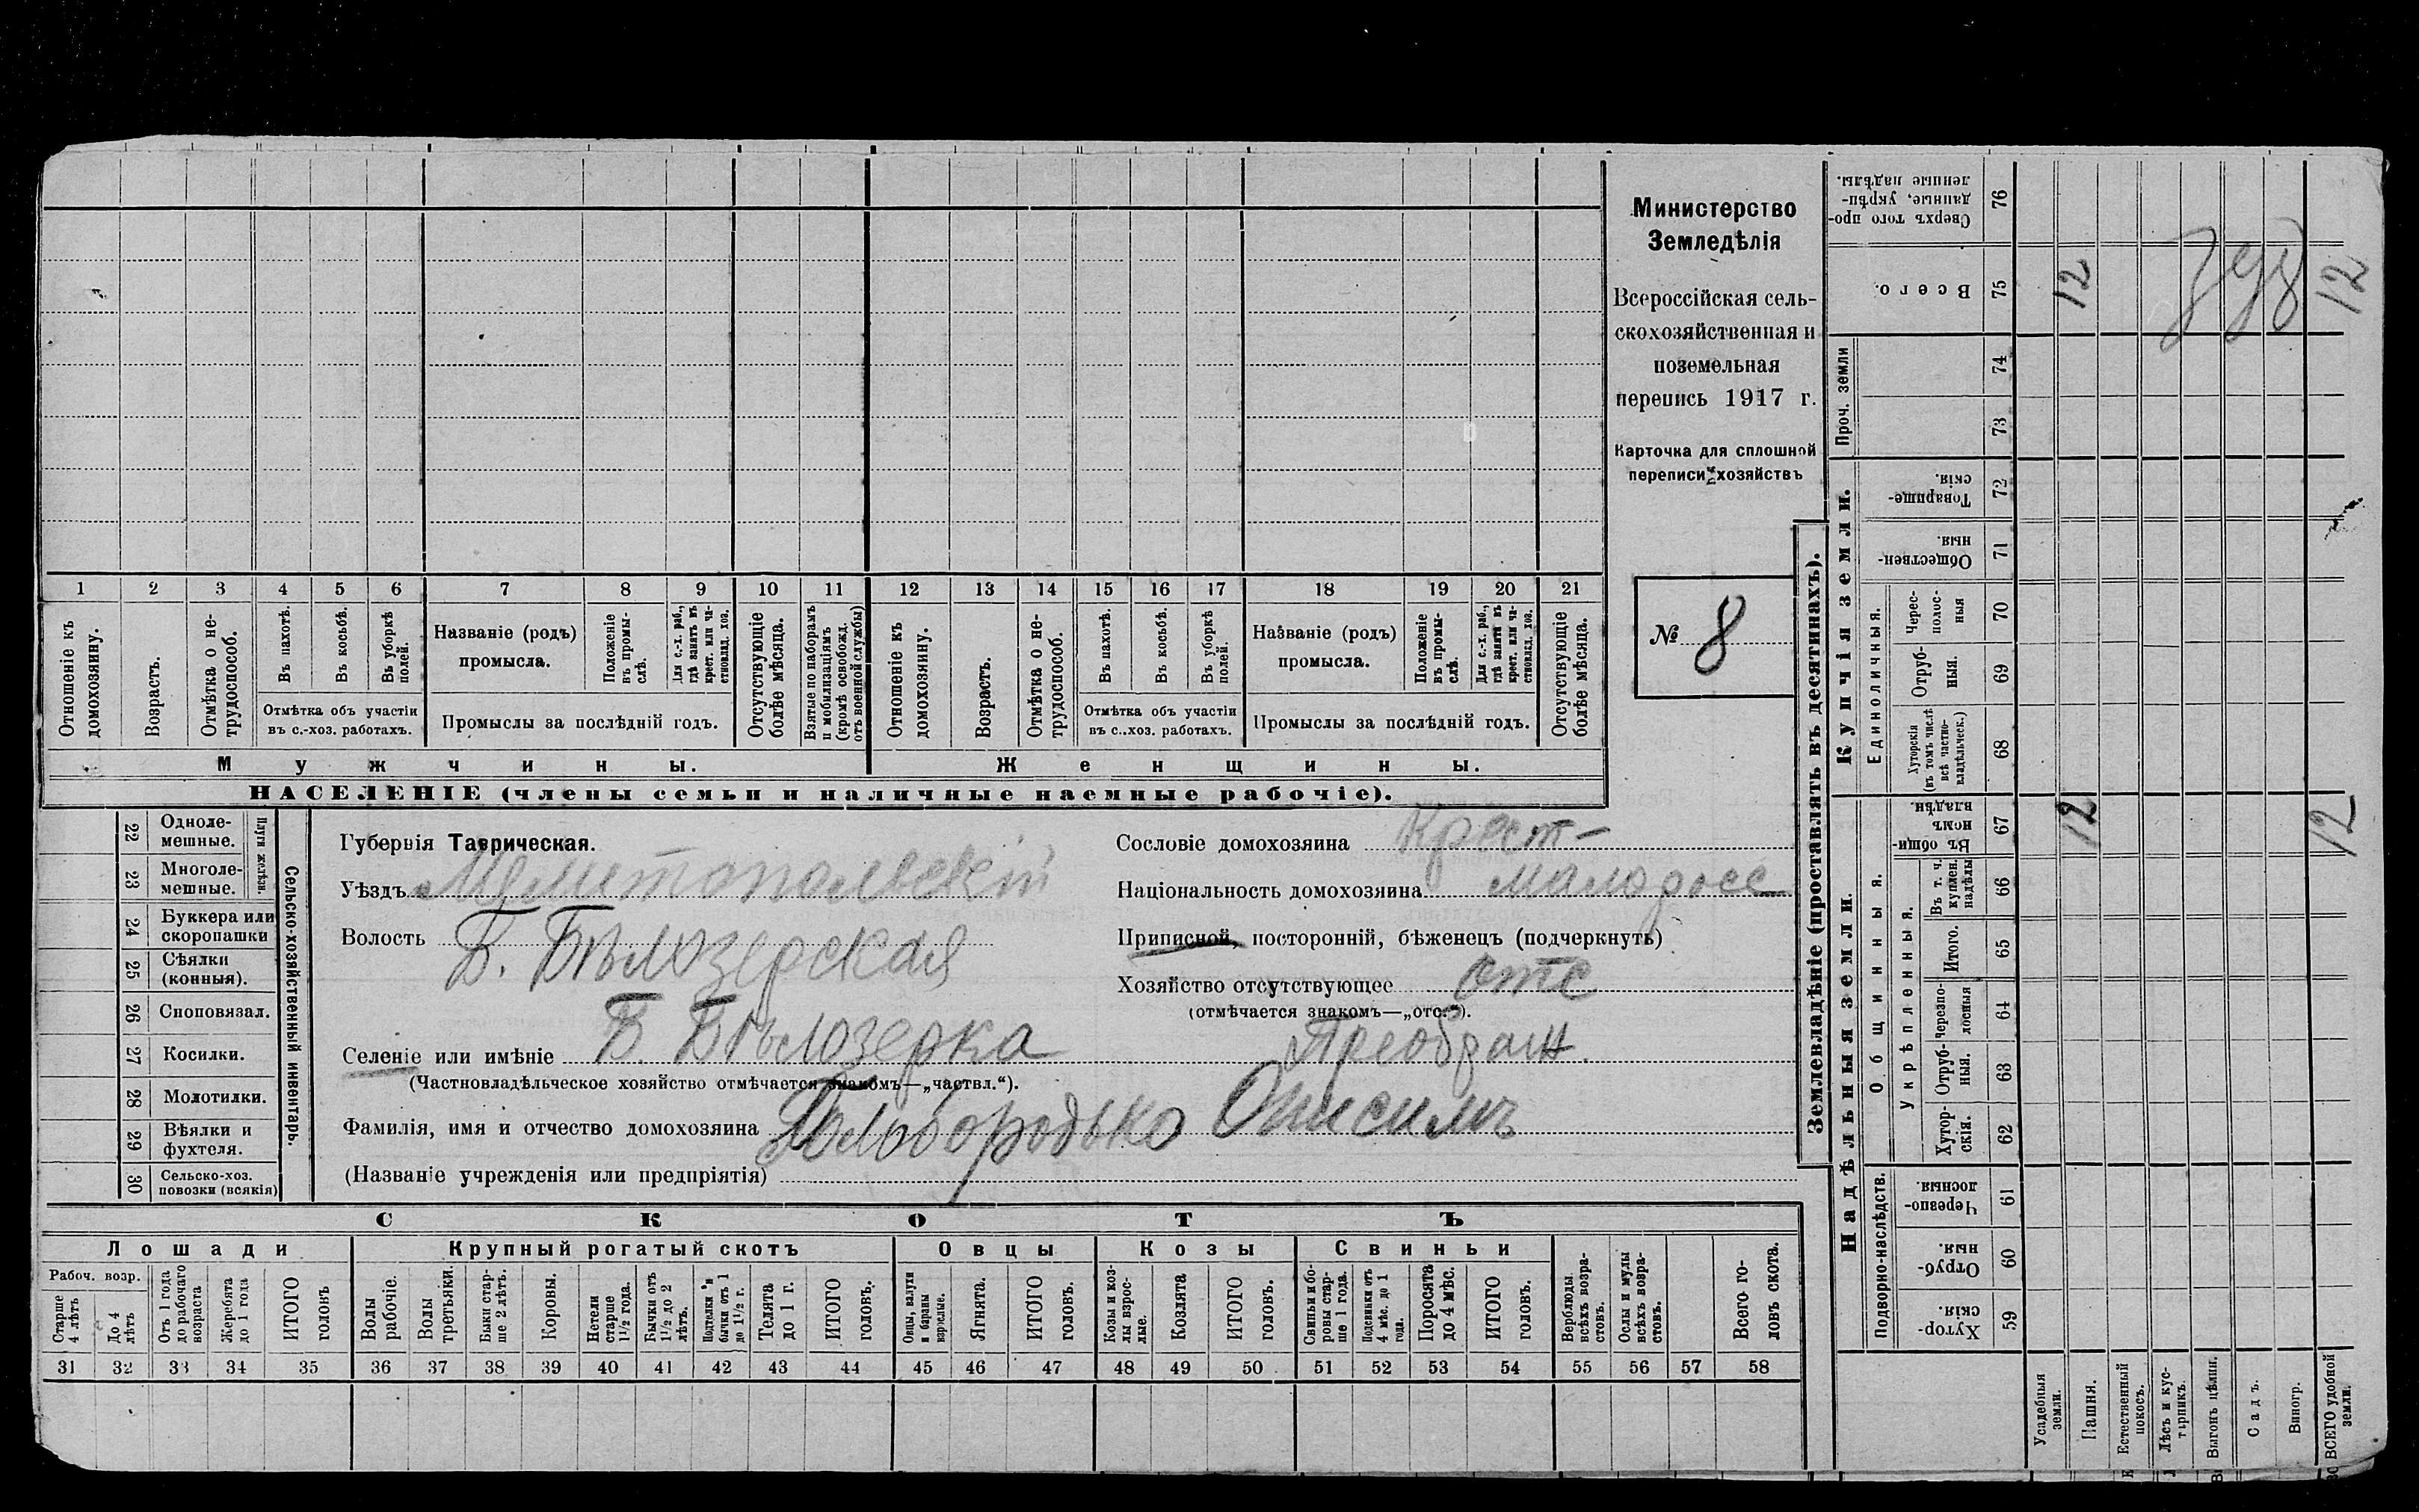 Министерство
Земледѣлія
Всероссійская сель-
скохозяйственная и
поземельная
перепись 1917 г.
Карточка для сплошной
переписи хозяйствъ
№ 8
1 2 3 4 5 6 7 8 9 10 11 12 13 14 15 16 17 18 19 20 21
Отношеніе къ домохозяину.
Возрастъ.
Отмѣтка о не-трудоспособ.
Въ пахотѣ.
Въ косьбѣ.
Въ уборкѣ полей.
Отмѣтка объ участіи
въ с.-хоз. работахъ.
Названіе (родъ)
промысла.
Положеніе въ промы-слѣ.
Для с.-х. раб., гдѣ занятъ въ крест. или ча-стновлад. хоз.
Промыслы за послѣдній годъ.
Отсутствующіе болѣе мѣсяца.
Взятые по наборамъ и мобилизаціямъ (кромѣ освобожд. отъ военной службы)
Отношеніе къ домохозяину.
Возрастъ.
Отмѣтка о не-трудоспособ.
Въ пахотѣ.
Въ косьбѣ.
Въ уборкѣ полей.
Отмѣтка объ участіи
въ с..хоз. работахъ.
Названіе (родъ)
промысла.
Положеніе въ промы-слѣ.
Для с.-х. раб., гдѣ заняти въ крест. или ча-стновлад. хоз.
Промыслы за послѣдній годъ.
Отсутствующіе болѣе мѣсяца.
Мужчины.
Женщины.
НАСЕЛЕНІЕ (члены семьи и наличные наемные рабочіе).
Сельско-хозяйственный инвентарь.
Плуги желѣзн.
22 Одноле-мешные.
23 Многоле-мешные.
24 Буккера или скоропашки
25 Сѣялки (конныя).
26 Сноповязал.
27 Косилки.
28 Молотилки.
29 Вѣялки и фухтеля.
30 Сельско-хоз. повозки (всякія)
Губернія Таврическая.
Уѣздъ Мелитопольскій
Волость Б. Бѣлозерская
Селеніе или имѣніе Б. Бѣлозерка Преображ.
(Частновладѣльческое хозяйство отмѣчается знакомъ—„частвл.“).
Фамилія, имя и отчество домохозяина Голобородько Онисимъ
(Названіе учрежденія или предпріятія)
Сословіе домохозяина Крест-
Національность домохозяина малоросс
Приписной, посторонній, бѣженецъ (подчеркнуть)
Хозяйство отсутствующее отс
(отмѣчается знакомъ—„отс.“).
СКОТЪ
Лошади
Крупный рогатый скотъ
Овцы
Козы
Свиньи
Рабоч. возр.
Старше 4 лѣтъ
До 4 лѣтъ
Отъ 1 года до рабочаго возраста
Жеребята до 1 года
ИТОГО головъ
Волы рабочіе.
Волы третьяки.
Быки стар-ше 2 лѣтъ.
Коровы.
Нетели старше 1½ года.
Бычки отъ 1½ до 2 лѣтъ.
Подтелки и бычки отъ 1 до 1½ г.
Телята до 1 г.
ИТОГО головъ.
Овцы, валухи и бараны взрослые.
Ягнята.
ИТОГО головъ.
Козы и коз-лы взрос-лые.
Козлята
ИТОГО головъ.
Свиньи и бо-ровы стар-ше 1 года.
Подсвинки отъ 4 мѣс. до 1 года.
Поросята до 4 мѣс.
ИТОГО головъ.
Верблюды всѣхъ возра-стовъ.
Ослы и мулы всѣхъ возра-стовъ.
Всего го-ловъ скота.
31 32 33 34 35 36 37 38 39 40 41 42 43 44 45 46 47 48 49 50 51 52 53 54 55 56 57 58
Землевладѣніе (проставлять въ десятинахъ).
Надѣльныя земли.
Купчія земли.
Проч. земли
Подворно-наслѣдств.
Общинныя.
Укрѣпленныя.
Единоличныя.
59 Хутор-скія.
60 Отруб-ныя.
61 Черезпо-лосныя.
62 Хутор-скія.
63 Отруб-ныя.
64 Черезпо-лосныя
65 Итого.
66 Въ т. ч. куплен. надѣлы
67 Въ общи-номъ владѣн.
68 Хуторскія (въ томъ числѣ всѣ частно-владѣльческ.)
69 Отруб-ныя.
70 Черес-полос-ныя
71 Обществен-ныя.
72 Товарище-скія.
73
74
75 Всего.
76 Сверхъ того про-данные, укрѣп-ленные надѣлы.
Усадебныя земли.
Пашня.
12
12
Естественный покосъ.
Лѣсъ и кус-тарникъ.
Выгонъ цѣлин.
Садъ.
Виногр.
ВСЕГО удобной земли.
12
12